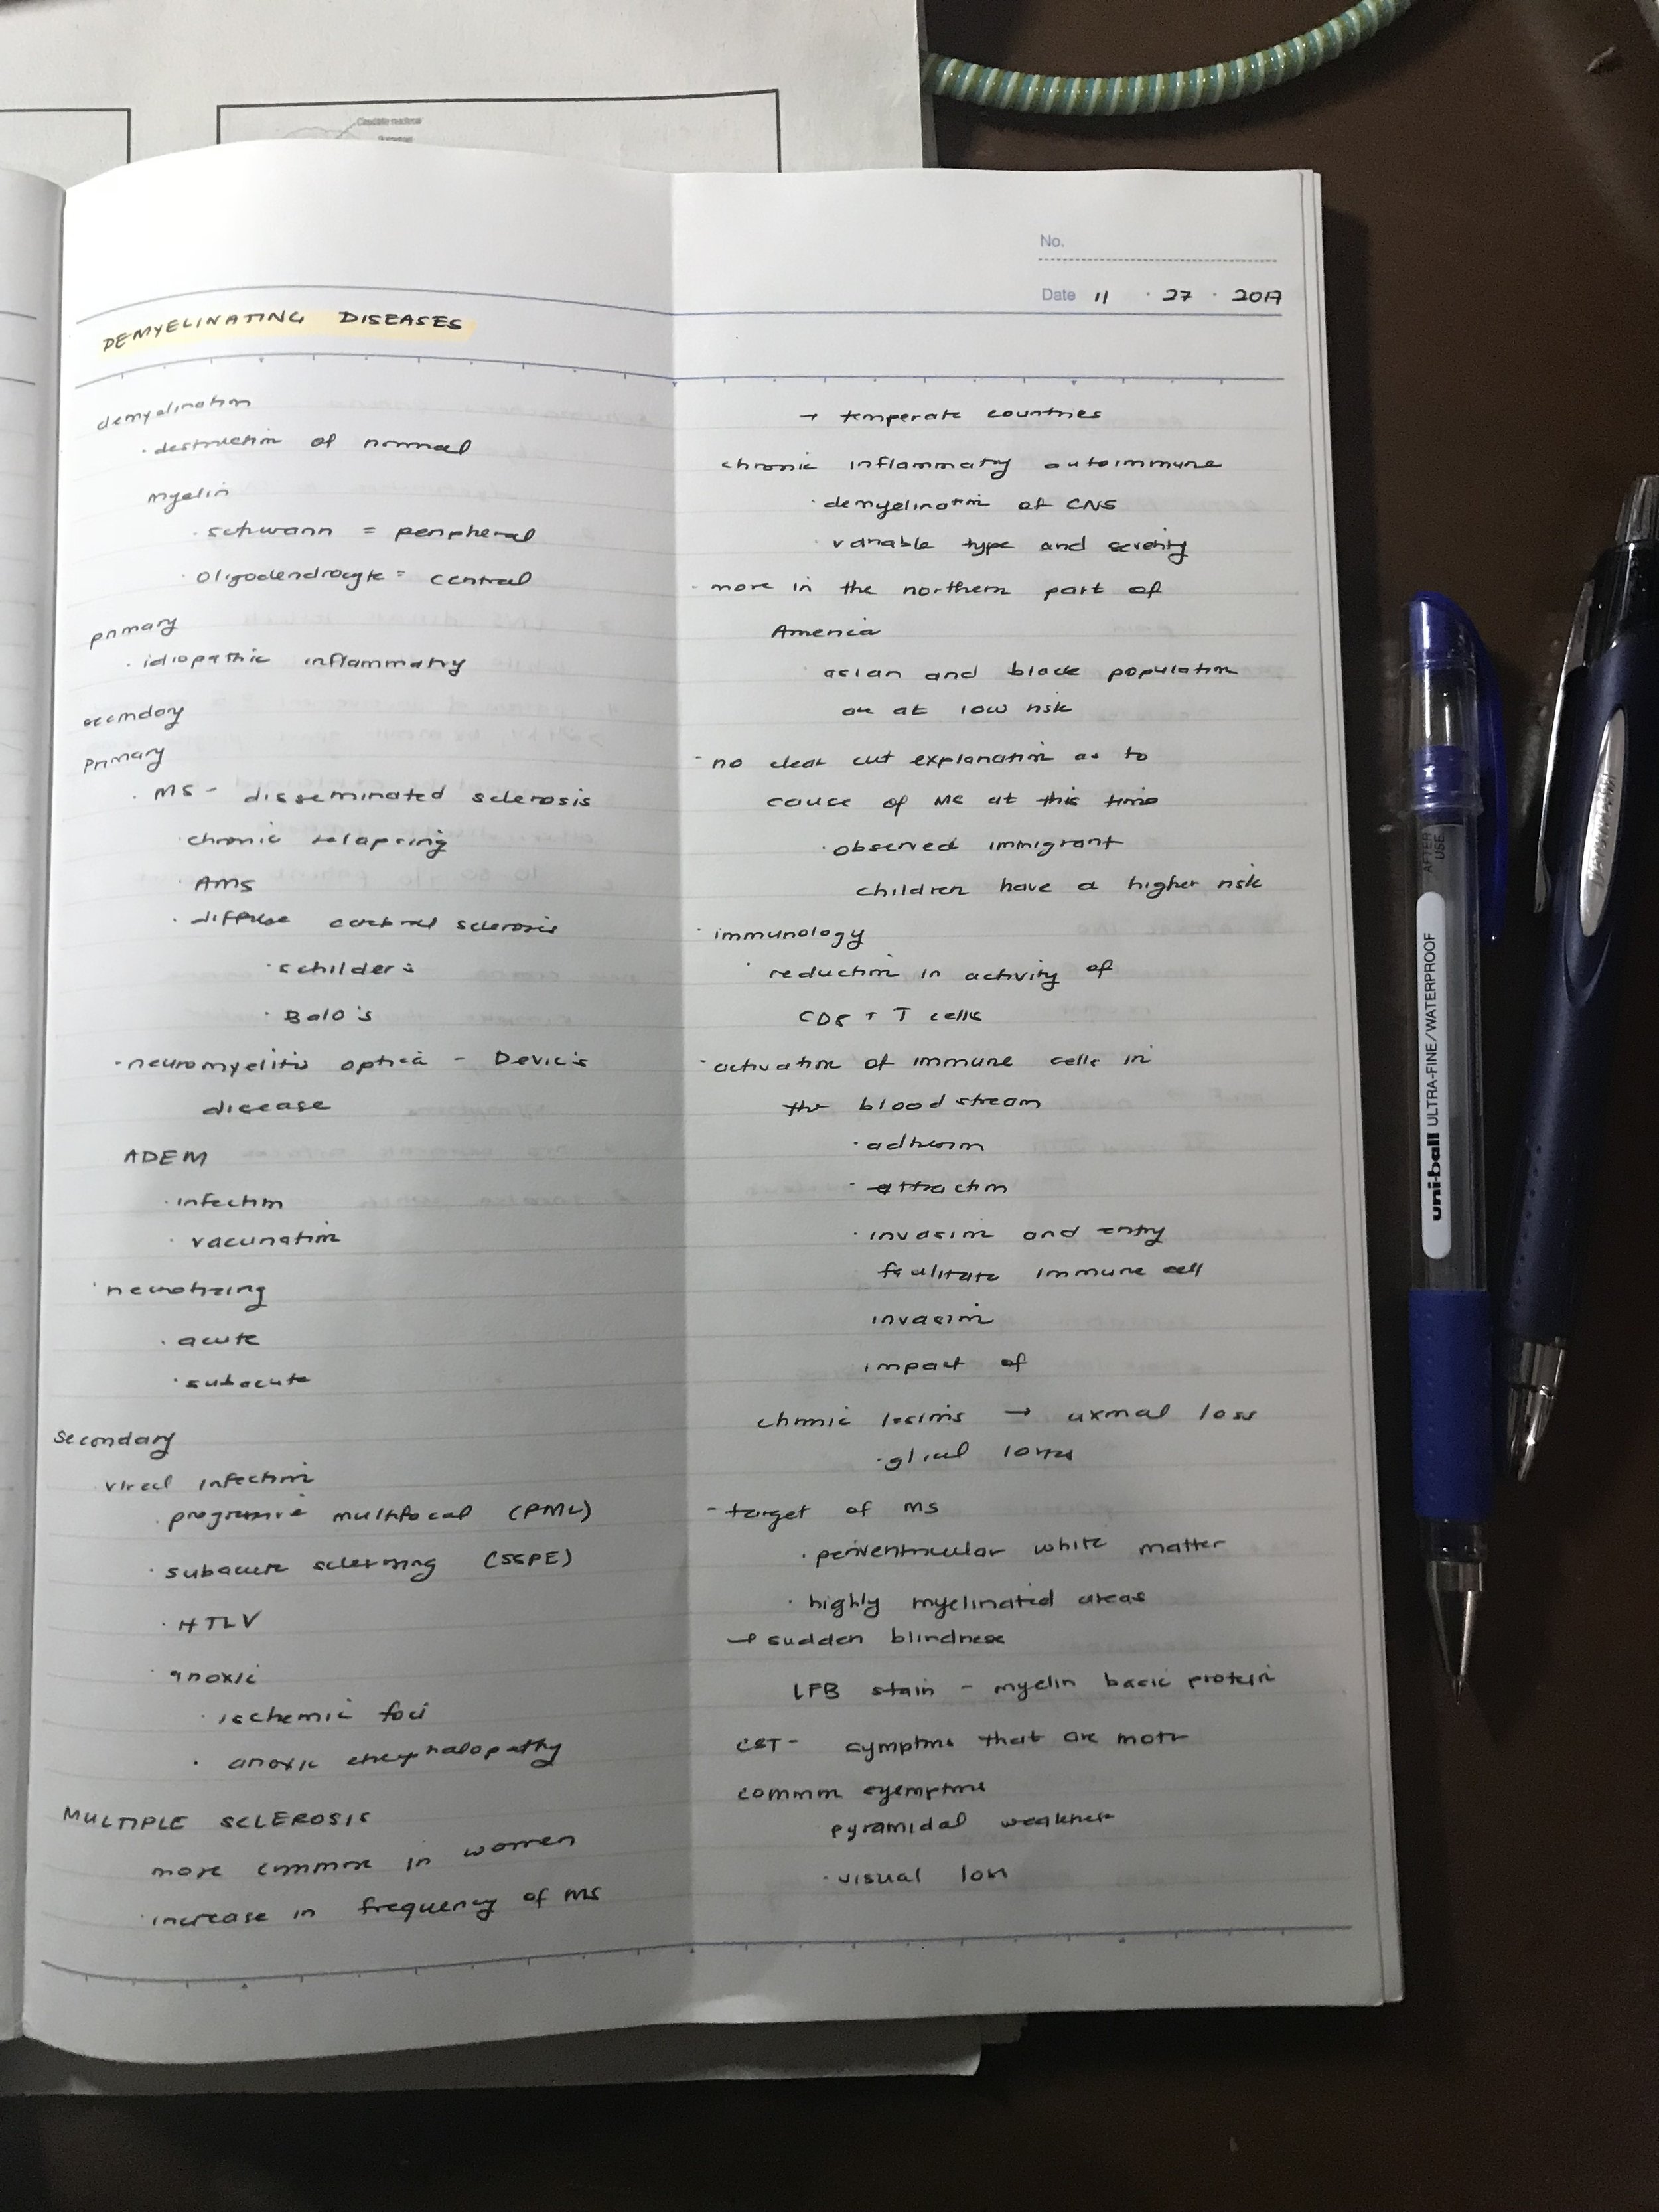 Caudate nucleus
No.
Date 11 · 27 · 2017
DEMYELINATING DISEASES
demyelination
· destruction of normal
myelin
· schwann = peripheral
· oligodendrocyte = central
primary
· idiopathic inflammatory
secondary
Primary
· MS - disseminated sclerosis
· chronic relapsing
· AMS
· diffuse cerebral sclerosis
· schilder's
· Balo's
· neuromyelitis optica - Devic's
disease
ADEM
· infection
· vaccination
· necrotizing
· acute
· subacute
Secondary
viral infection
· progressive multifocal (PML)
· subacute sclerosing (SSPE)
· HTLV
anoxic
· ischemic foci
· anoxic encephalopathy
MULTIPLE SCLEROSIS
more common in women
· increase in frequency of MS
→ temperate countries
chronic inflammatory autoimmune
· demyelination of CNS
· variable type and severity
- more in the northern part of
America
asian and black population
are at low risk
- no clear cut explanation as to
cause of MS at this time
· observed immigrant
children have a higher risk
· immunology
· reduction in activity of
CD8 + T cells
- activation of immune cells in
the bloodstream
· adhesion
· attraction
· invasion and entry
facilitate immune cell
invasion
impact of
chronic lesions → axonal loss
· glial loss
- target of MS
· periventricular white matter
· highly myelinated areas
→ sudden blindness
LFB stain - myelin basic protein
CST - symptoms that are motor
common symptoms
pyramidal weakness
· visual loss
uni-ball ULTRA-FINE/WATERPROOF
AFTER
USE